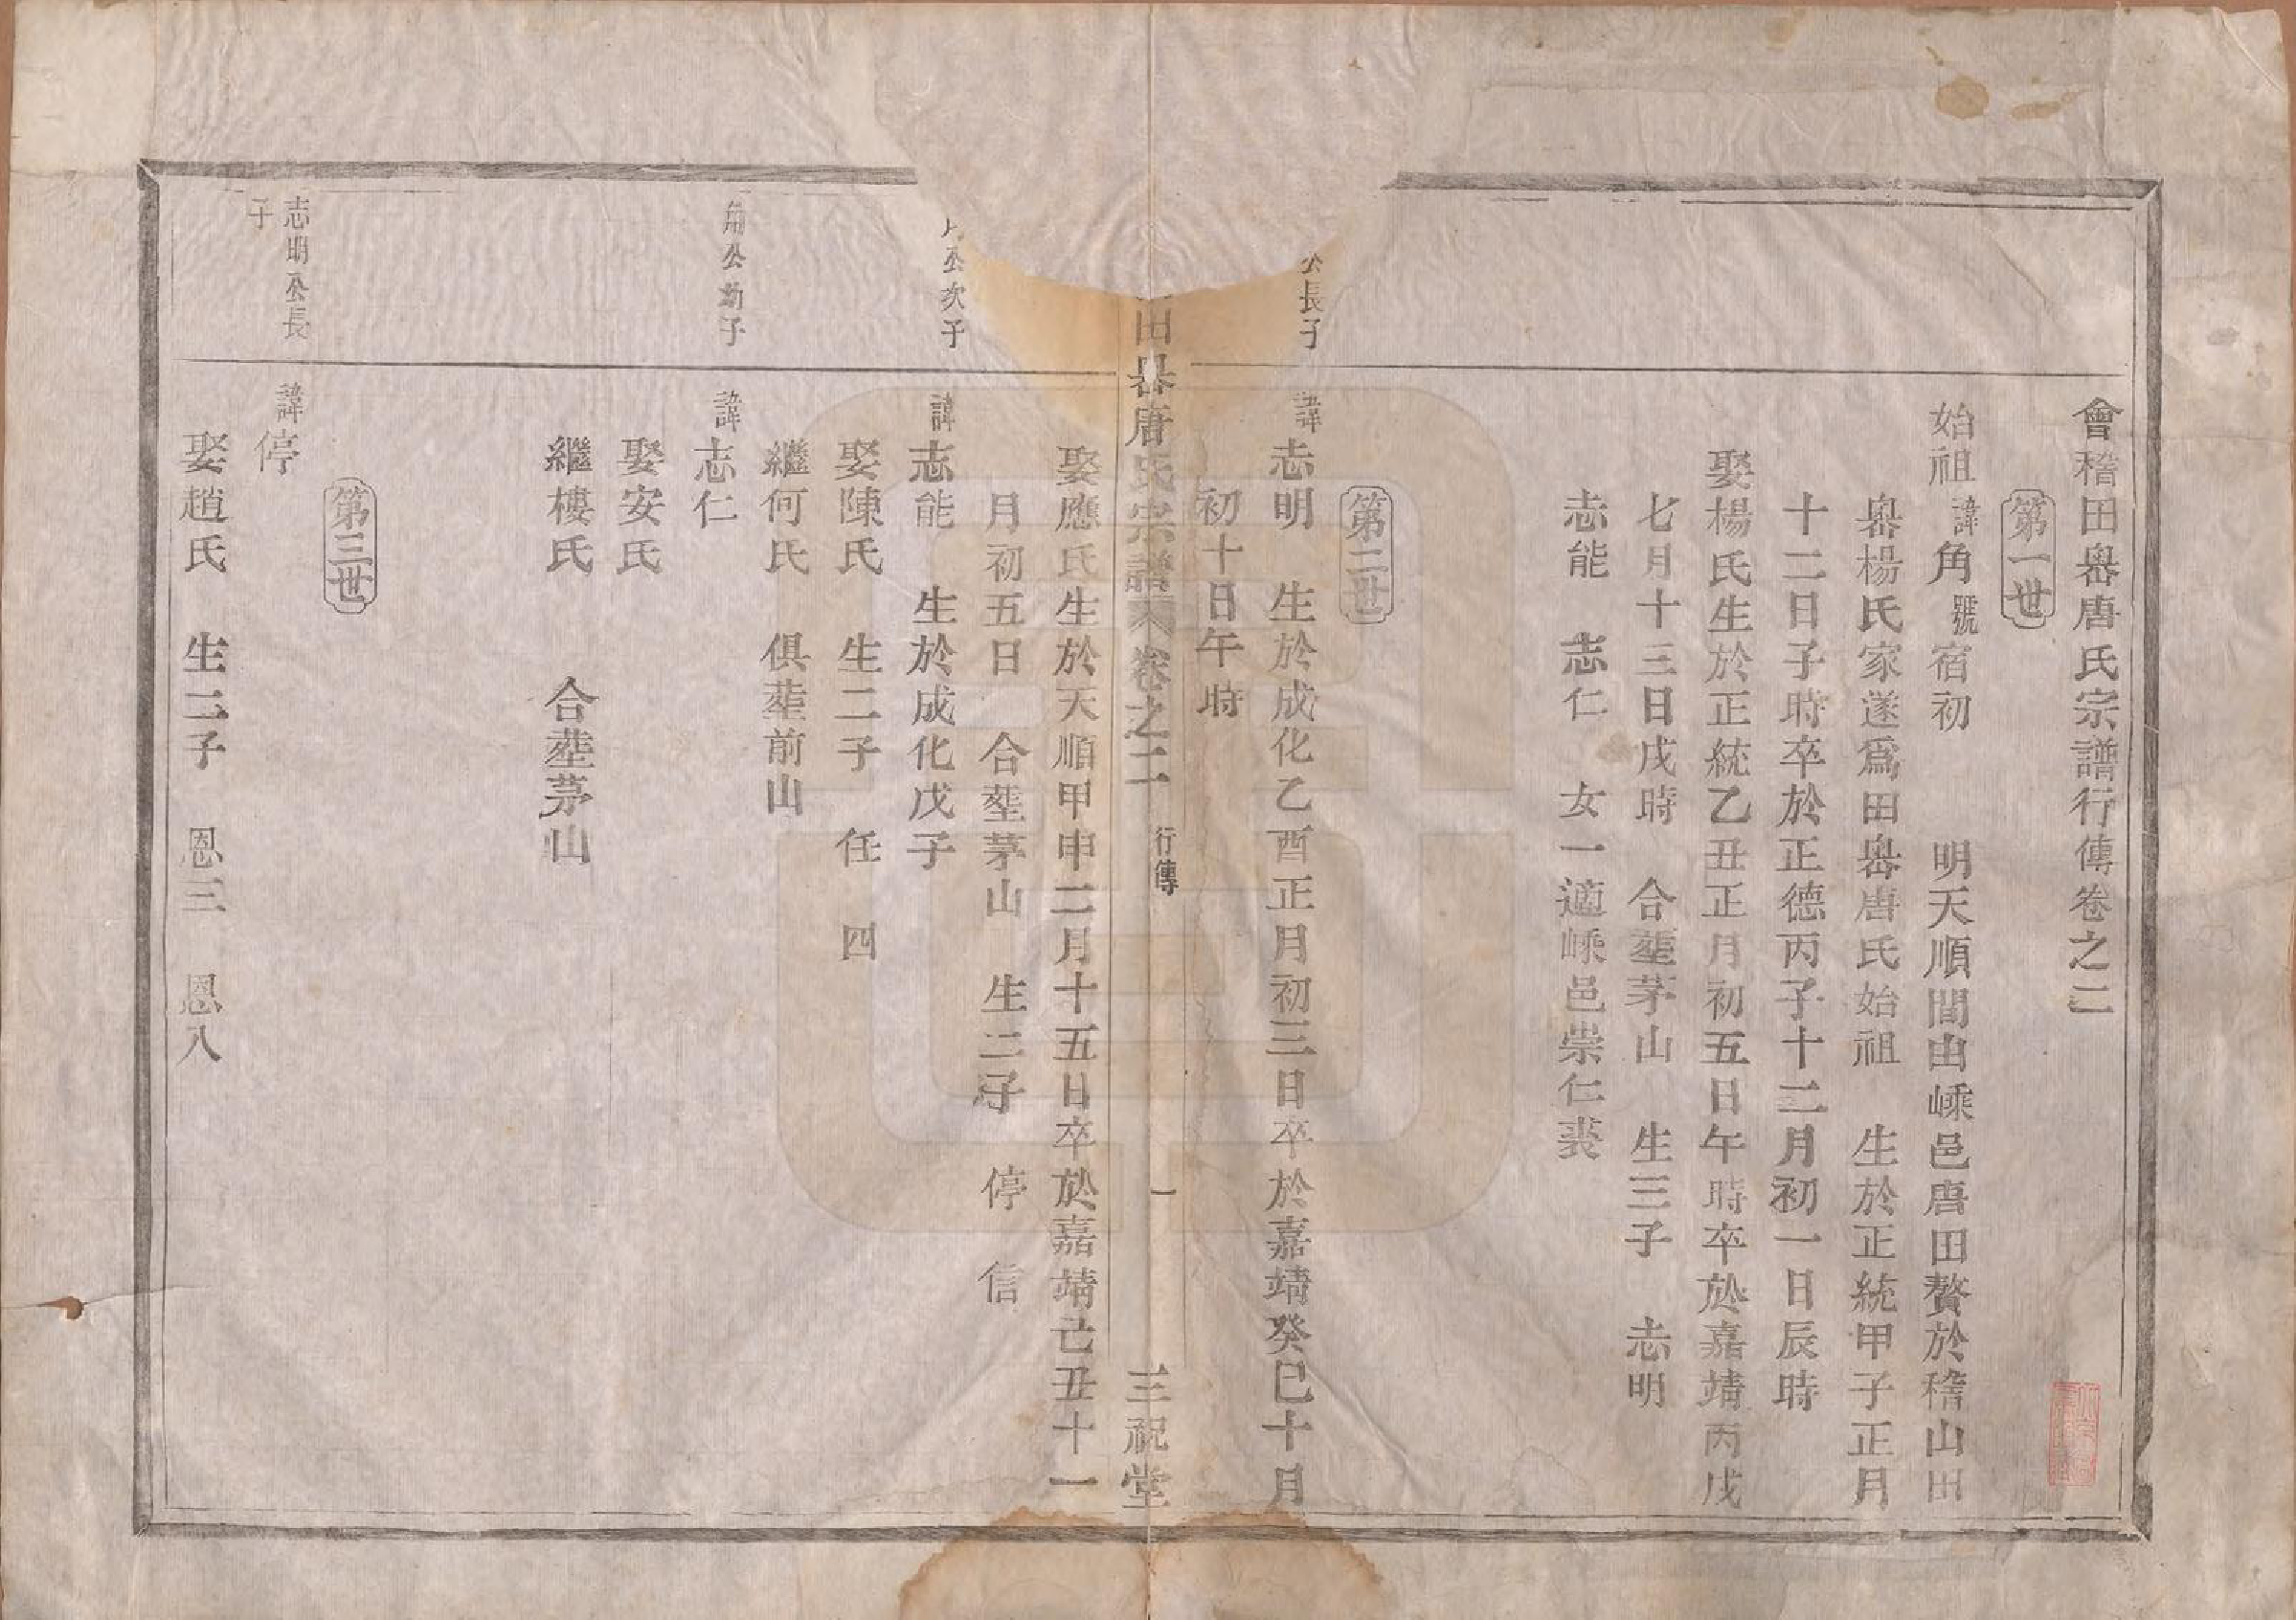 會稽田嶴唐氏宗譜行傳卷之二
第一世
始祖諱角號宿初 明天順間由嵊邑唐田贅於稽山田
嶴楊氏家遂爲田嶴唐氏始祖 生於正統甲子正月
十二日子時卒於正德丙子十二月初一日辰時
娶楊氏生於正統乙丑正月初五日午時卒於嘉靖丙戌
七月十三日戌時 合塟茅山 生三子 志明
志能 志仁 女一適嵊邑崇仁裘
第二世
公長子
諱志明 生於成化乙酉正月初三日卒於嘉靖癸巳十月
初十日午時
田嶴唐氏宗譜 卷之二 行傳 一 三祝堂
娶應氏生於天順甲申二月十五日卒於嘉靖己丑十一
月初五日 合塟茅山 生二子 停 信
公次子
諱志能 生於成化戊子
娶陳氏 生二子 任 四
繼何氏 俱塟前山
角公幼子
諱志仁
娶安氏
繼樓氏 合塟茅山
第三世
志明公長
子
諱停
娶趙氏 生二子 恩三 恩八